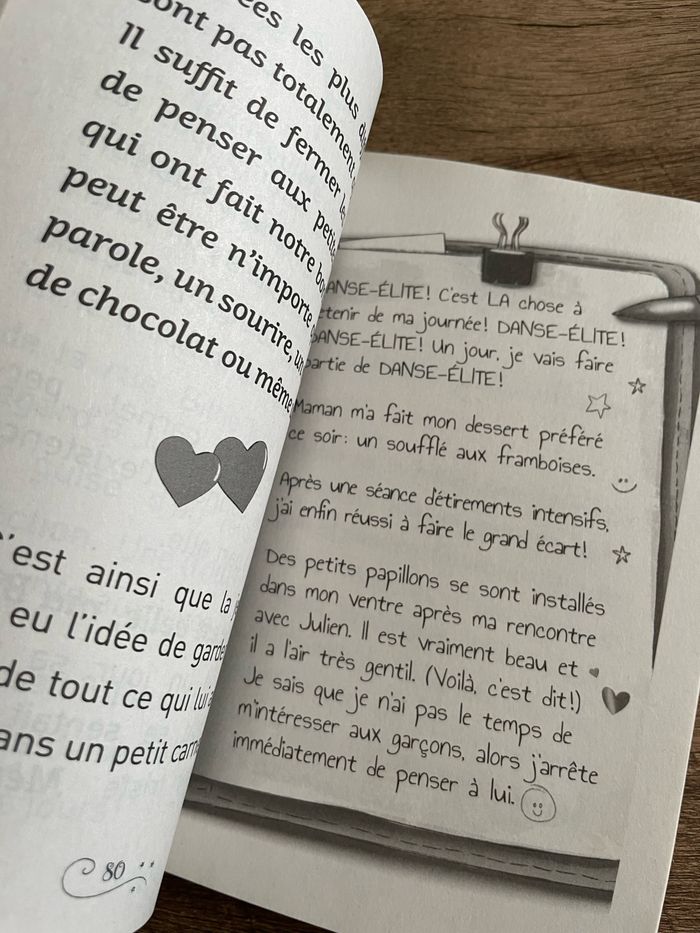 les plus
sont pas totalement
Il suffit de fermer
de penser aux
qui ont fait notre
peut être n'importe
parole, un sourire,
de chocolat ou même
C'est ainsi que la
eu l'idée de
de tout ce qui
dans un petit
80
DANSE-ÉLITE! C'est LA chose à
retenir de ma journée! DANSE-ÉLITE!
DANSE-ÉLITE! Un jour, je vais faire
partie de DANSE-ÉLITE!
Maman m'a fait mon dessert préféré
ce soir: un soufflé aux framboises.
Après une séance d'étirements intensifs,
j'ai enfin réussi à faire le grand écart!
Des petits papillons se sont installés
dans mon ventre après ma rencontre
avec Julien. Il est vraiment beau et
il a l'air très gentil. (Voilà, c'est dit!)
Je sais que je n'ai pas le temps de
m'intéresser aux garçons, alors j'arrête
immédiatement de penser à lui.